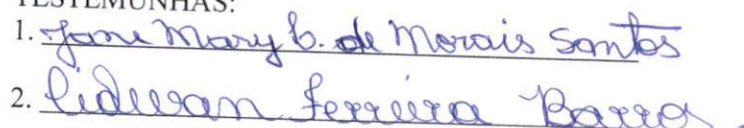 TESTEMUNHAS:
1. Jane Mary C. de Morais Santos
2. Lidwan Ferreira Barros